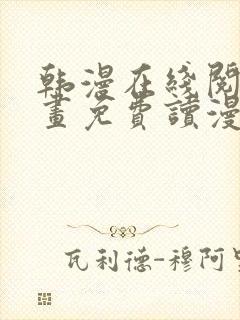 韩漫在线阅
畫免費讀漫
瓦利德-穆阿